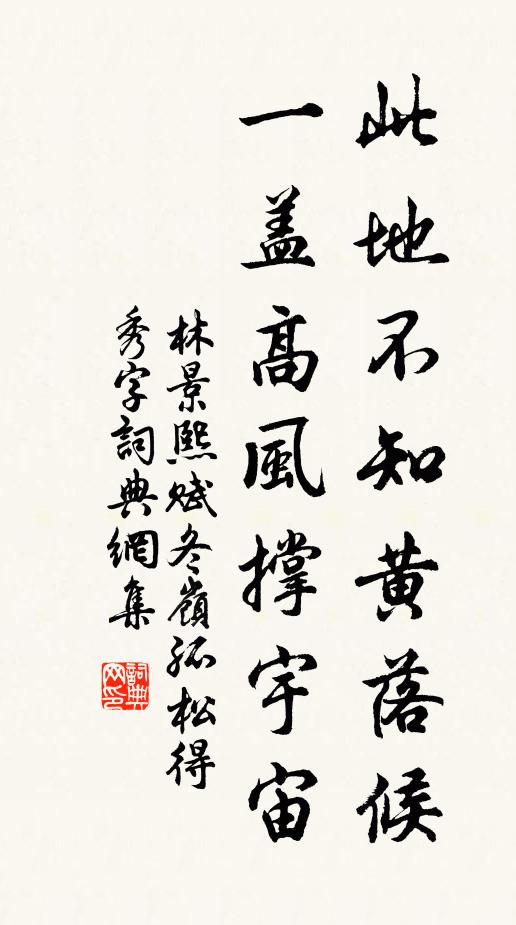 此地不知黄落候
一盖高風撑宇宙
林景熙賦冬嶺孤松得
秀字詞典網集
詞典
网印